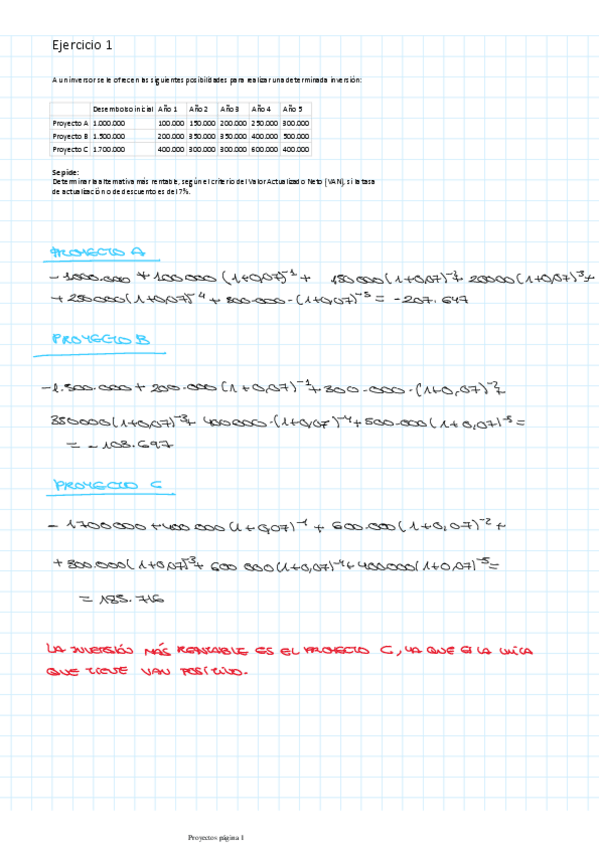 Ejercicio 1
A un inversor se le ofrecen las siguientes posibilidades para realizar una determinada inversión:
Desembolso inicial Año 1 Año 2 Año 3 Año 4 Año 5
Proyecto A 1.000.000 100.000 150.000 200.000 250.000 300.000
Proyecto B 1.500.000 200.000 350.000 350.000 400.000 500.000
Proyecto C 1.700.000 400.000 300.000 300.000 600.000 400.000
Se pide:
Determinar la alternativa más rentable, según el criterio del Valor Actualizado Neto (VAN), si la tasa
de actualización o de descuento es del 7%.
PROYECTO A
- 1000.000 + 100000 (1+0,07)⁻¹ + 150000(1+0,07)⁻²+ 20000(1+0,07)⁻³+
+ 250000(1+0,07)⁻⁴ + 300.000·(1+0,07)⁻⁵ = -207.647
PROYECTO B
-1.500.000 + 200.000(1+0,07)⁻¹+300.000·(1+0,07)⁻²+
350000(1+0,07)⁻³+ 400000·(1+0,07)⁻⁴+500.000(1+0,07)⁻⁵=
= -103.697
PROYECTO C
- 1700000 +400.000(1+0,07)⁻¹ + 600.000(1+0,07)⁻² +
+300.000(1+0,07)⁻³+ 600 000(1+0,07)⁻⁴+400000(1+0,07)⁻⁵=
= 185.716
LA INVERSIÓN MÁS RENTABLE ES EL PROYECTO C, YA QUE ES LA ÚNICA
QUE TIENE VAN POSITIVO.
Proyectos página 1